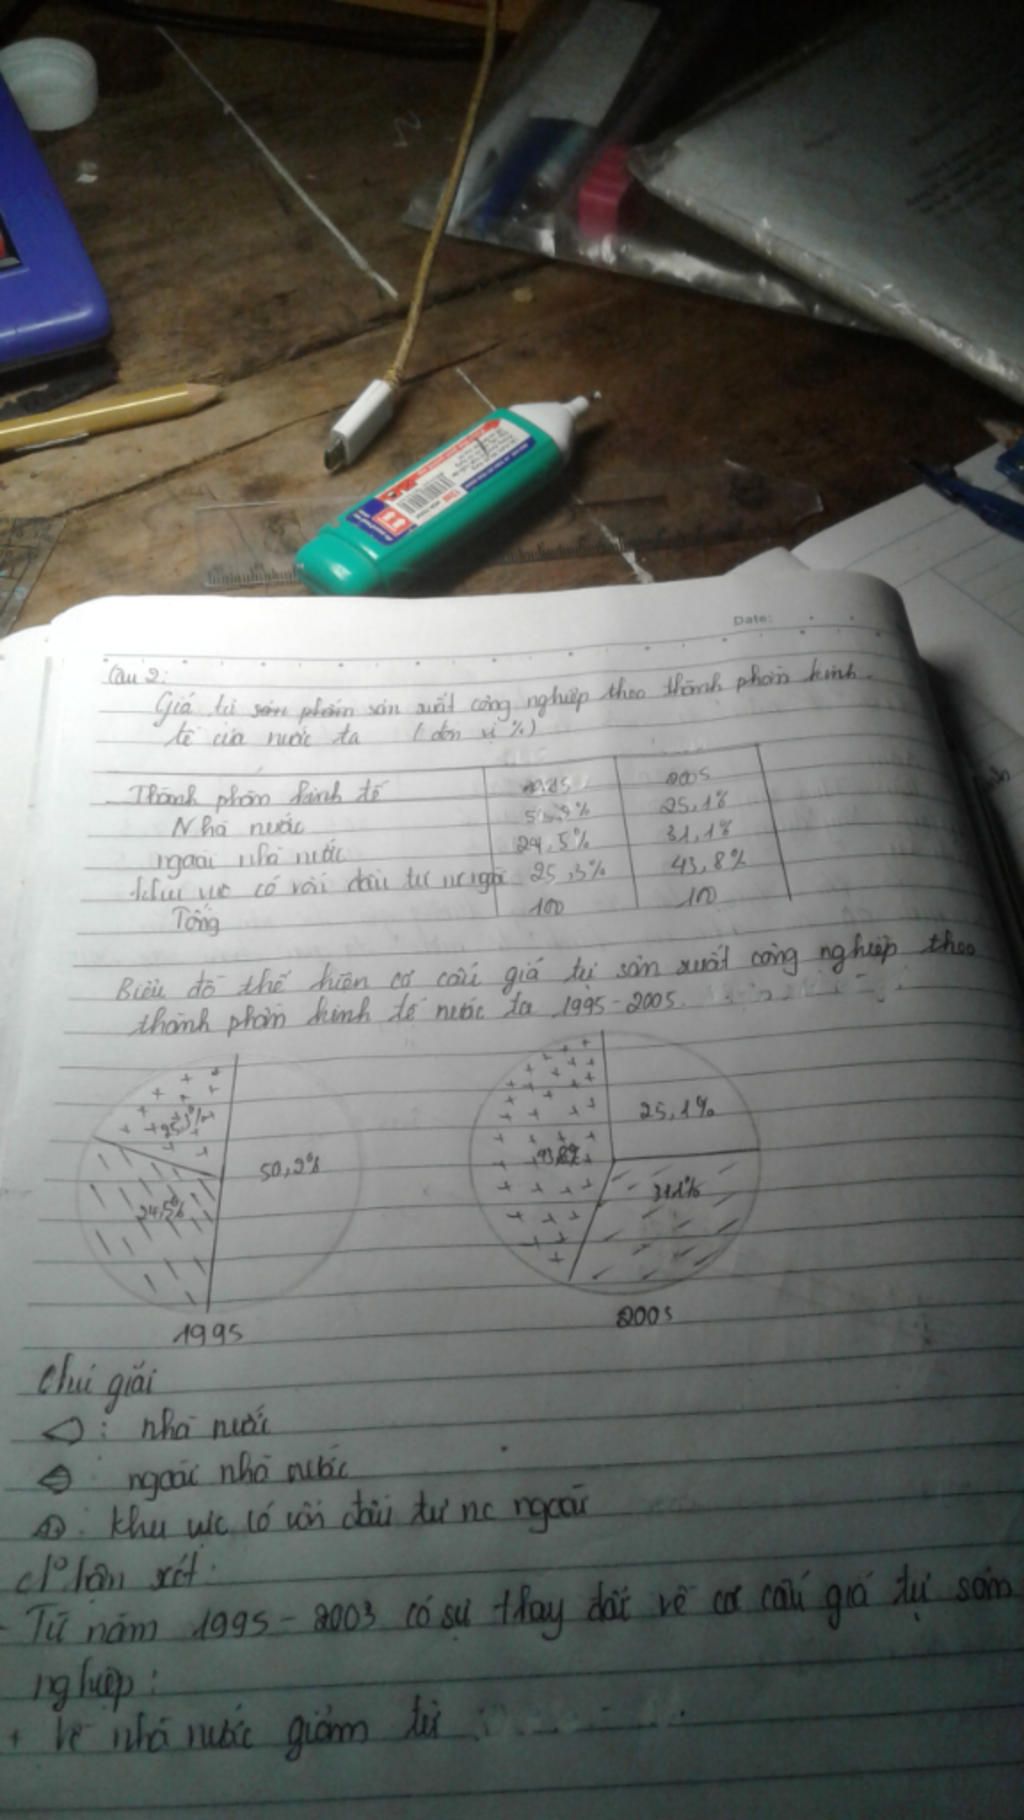 Date:
Câu 2:
Giá trị sản phẩm sản xuất công nghiệp theo thành phần kinh
tế của nước ta (đơn vị %)
Thành phần kinh tế 1995 2005
Nhà nước 25,1%
ngoài nhà nước 24,5% 31,1%
khu vực có vốn đầu tư nc ngoài 25,3% 43,8%
Tổng 100 100
Biểu đồ thể hiện cơ cấu giá trị sản xuất công nghiệp theo
thành phần kinh tế nước ta 1995-2005.
25,3% 50,2% 24,5%
25,1% 43,8% 31,1%
1995 2005
Chú giải
: nhà nước
: ngoài nhà nước
: khu vực có vốn đầu tư nc ngoài
Nhận xét:
- Từ năm 1995-2003 có sự thay đổi về cơ cấu giá trị sản
nghiệp:
+ Về nhà nước giảm từ